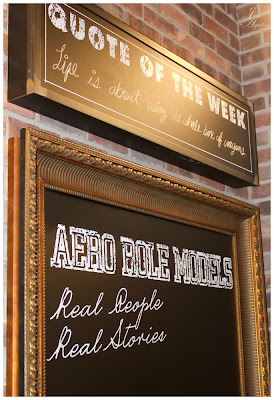 QUOTE OF THE WEEK
Life is about using the whole box of crayons
AERO ROLE MODELS
Real People
Real Stories